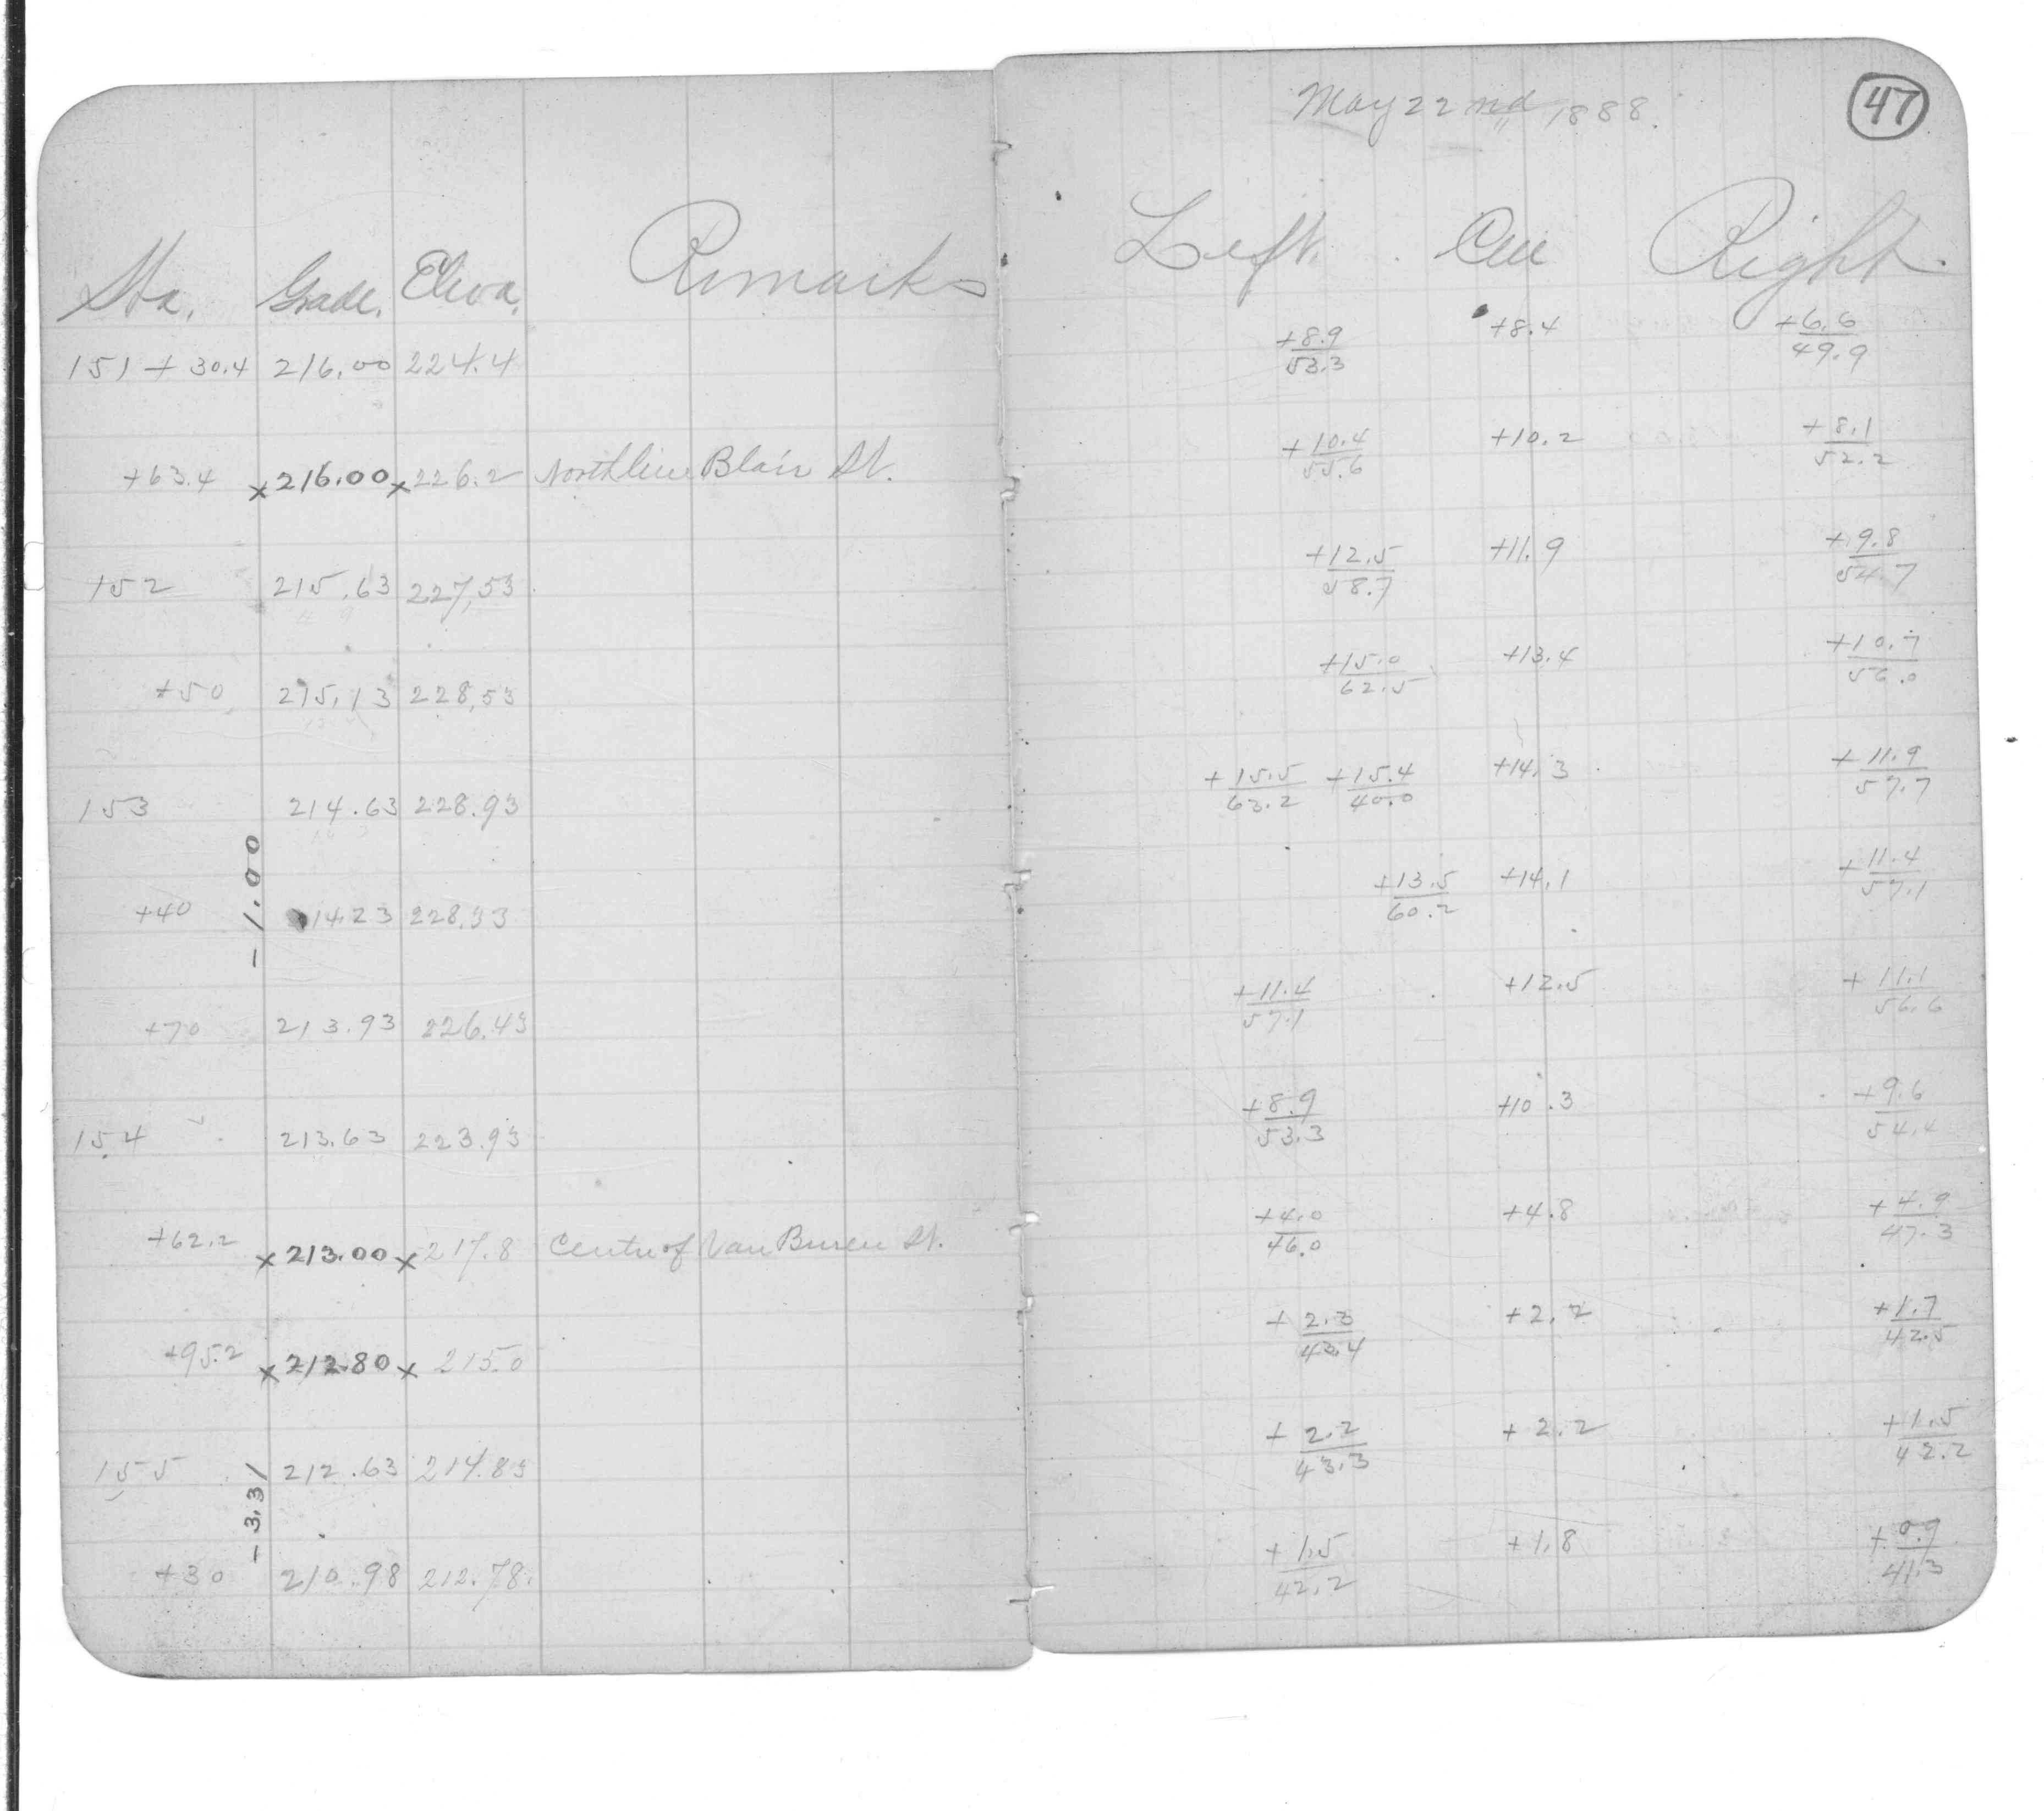 May 22nd, 1888.
47
Sta. Grade. Eleva. Remarks
Left. Cen Right.
151 + 30.4 216.00 224.4
+8.9 +8.4 +6.6
53.3 49.9
+63.4 x 216.00 x 226.2 North line Blair St.
+10.4 +10.2 +8.1
55.6 52.2
152 215.63 227.53
+12.5 +11.9 +9.8
58.7 54.7
+50 215.13 228.53
+15.0 +13.4 +10.7
62.5 56.0
153 214.63 228.93
+15.5 +15.4 +14.3 +11.9
63.2 40.0 57.7
-1.00
+40 14.23 228.33
+13.5 +14.1 +11.4
60.2 57.1
+70 213.93 226.43
+11.4 +12.5 +11.1
57.1 56.6
154 213.63 223.93
+8.9 +10.3 +9.6
53.3 54.4
+62.2 x 213.00 x 217.8 Centre of Van Buren St.
+4.0 +4.8 +4.9
46.0 47.3
+95.2 x 212.80 x 215.0
+2.3 +2.2 +1.7
43.4 42.5
155 212.63 214.83
+2.2 +2.2 +1.5
43.3 42.2
-3.31
+30 210.98 212.78.
+1.5 +1.8 +0.9
42.2 41.3